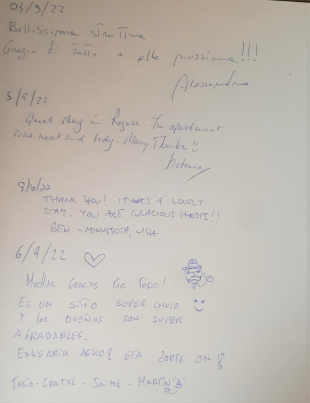 04/9/22
Bellissima struttura
Grazie di tutto e alla prossima!!!
Alessandra
5/9/22
Great stay in Ragusa. The apartment
was neat and tidy. Many Thanks
9/6/22
THANK YOU! IT WAS A LOVELY
STAY. YOU ARE GRACIOUS HOSTS!!
BEN - MINNESOTA, USA
6/9/22
MUCHAS GRACIAS POR TODO!
ES UN SITIO SUPER CHULO
Y LOS DUEÑOS SON SUPER
AGRADABLES.
ESKERRIK ASKO! ETA ZORTE ON!
- JAIME - MARTÍN